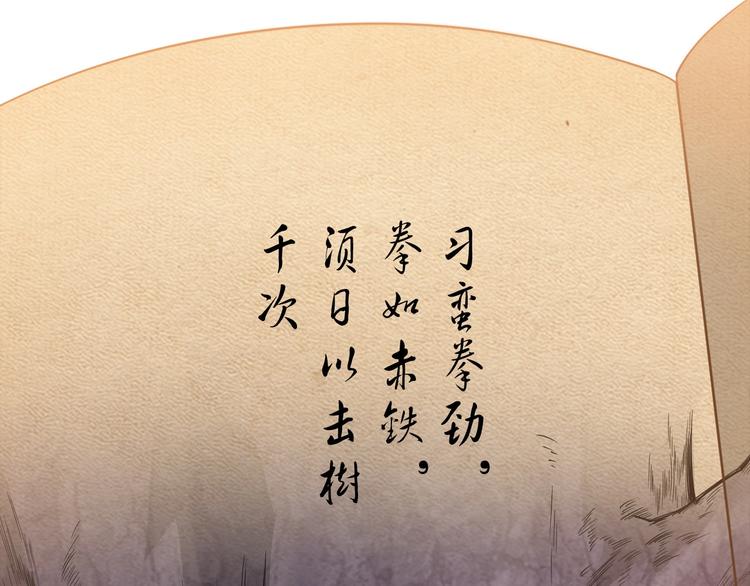 习蛮拳劲，
拳如赤鉄，
须日以击樹
千次